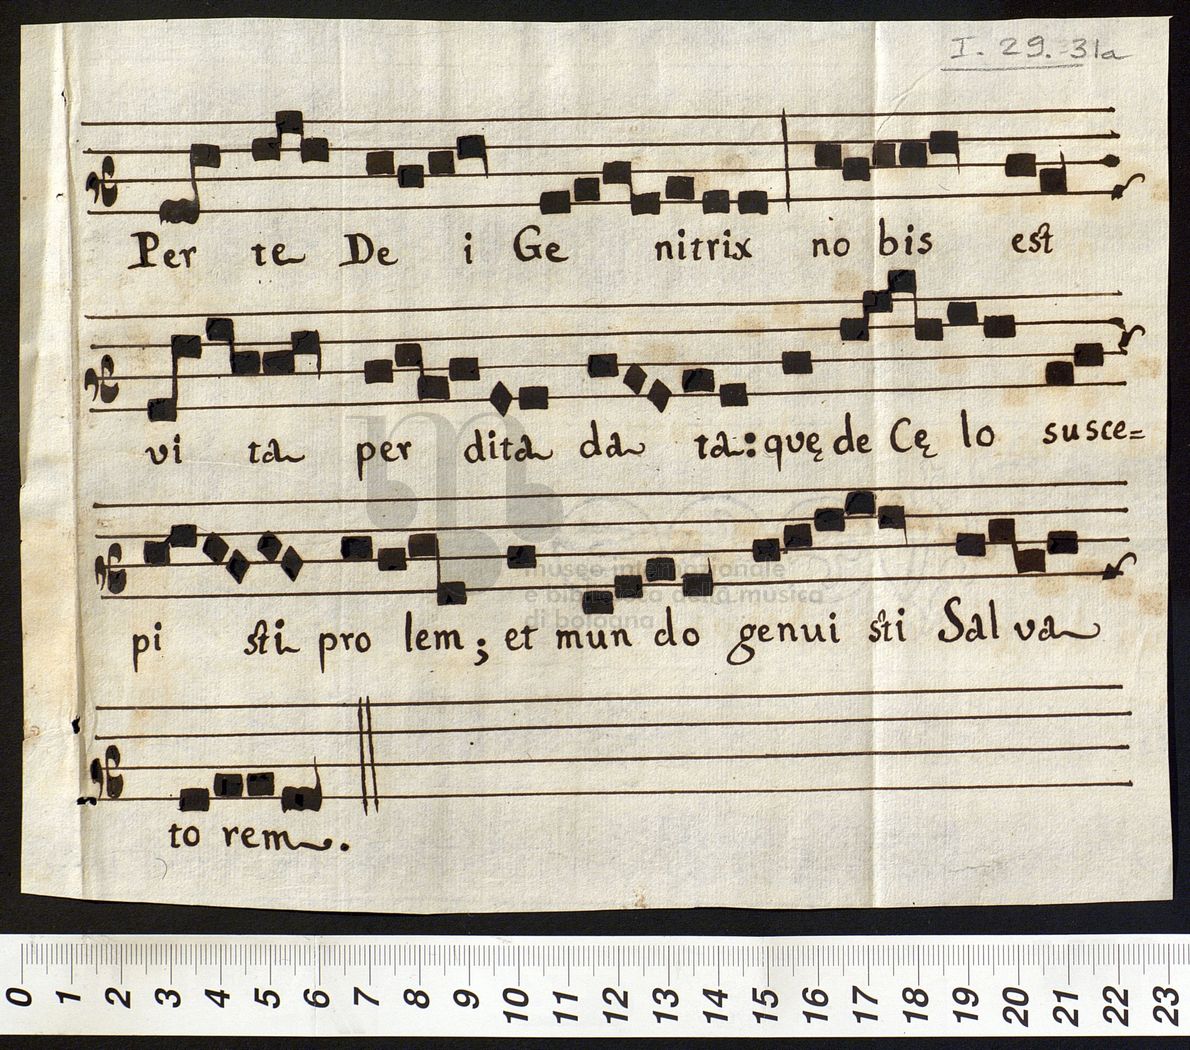 I. 29. 31a
Per te De i Ge nitrix no bis est
vi ta per dita da ta: quę de Cę lo susce=
pi sti pro lem; et mun do genui sti Sal va
to rem.
museo internazionale
e biblioteca della musica
di bologna
0 1 2 3 4 5 6 7 8 9 10 11 12 13 14 15 16 17 18 19 20 21 22 23